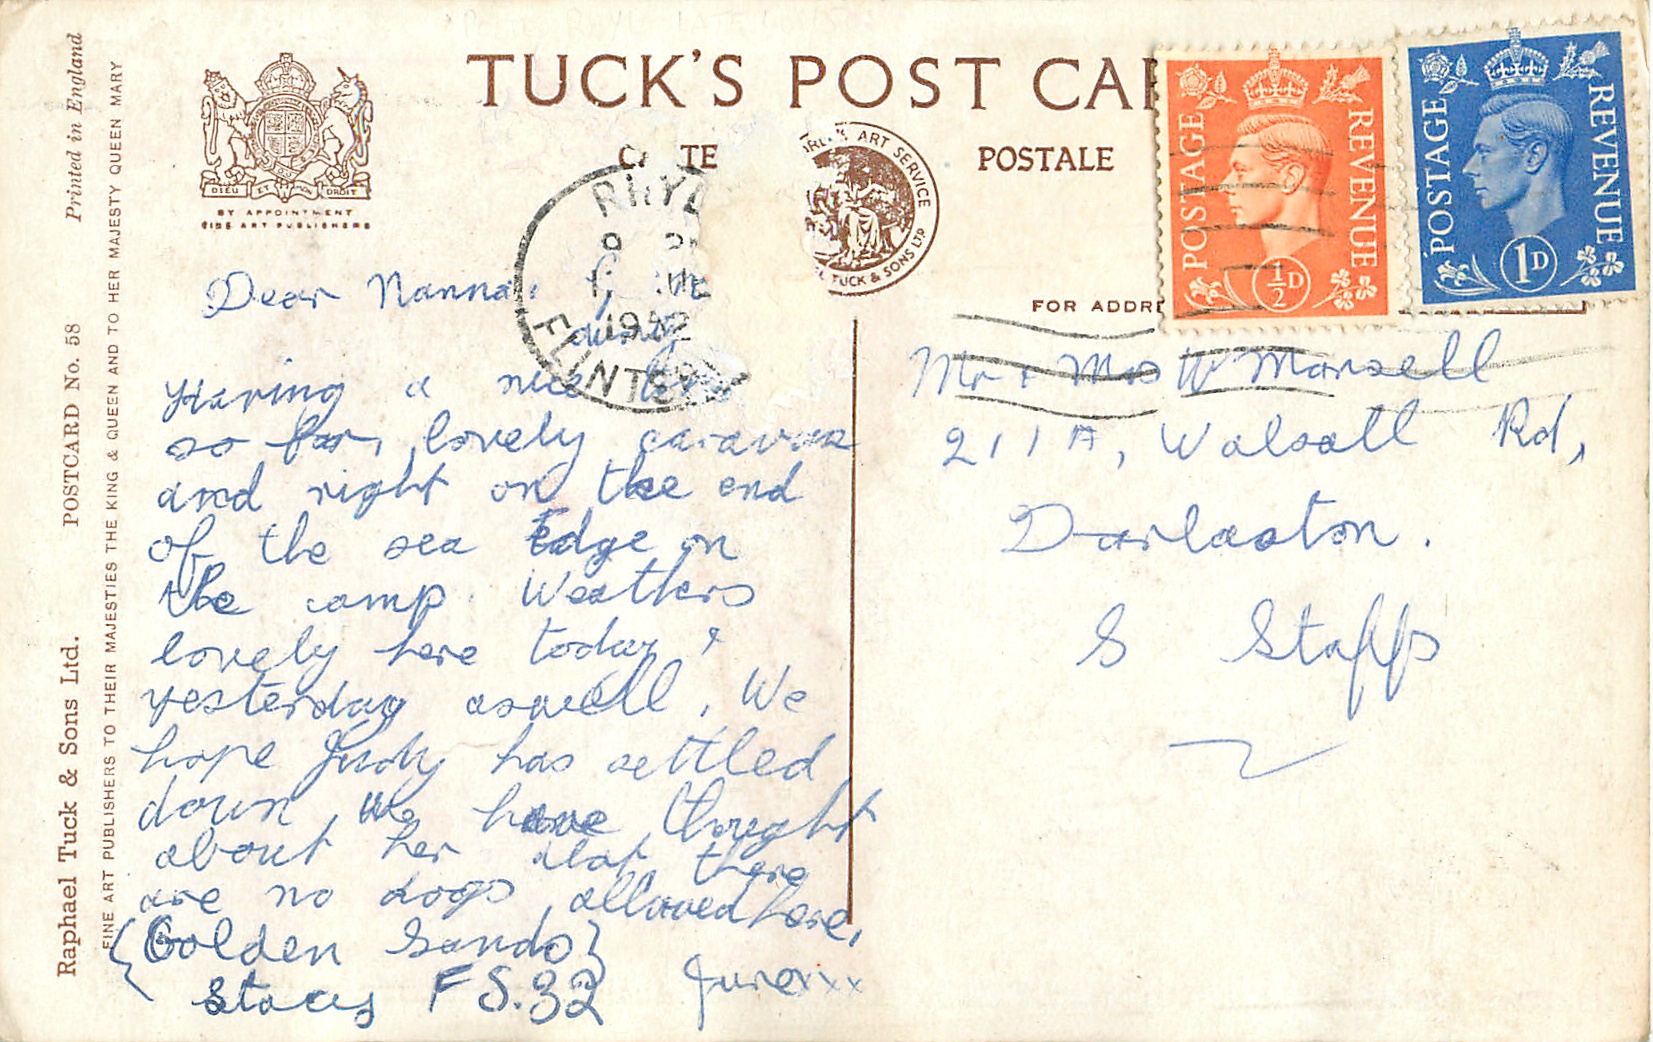 Printed in England
POSTCARD No. 58
Raphael Tuck & Sons Ltd.
FINE ART PUBLISHERS TO THEIR MAJESTIES THE KING & QUEEN AND TO HER MAJESTY QUEEN MARY
DIEU ET MON DROIT
BY APPOINTMENT
FINE ART PUBLISHERS
TUCK'S POST CAR
CA TE
POSTALE
ART SERVICE
TUCK & SONS LTD
RHYL
1952
FLINTS
FOR ADDRE
POSTAGE REVENUE
½D
POSTAGE REVENUE
1D
Dear Nanna
Having a nice
so far, lovely caravan
and right on the end
of the sea Edge on
the camp. Weathers
lovely here today &
yesterday aswell. We
hope Judy has settled
down we have thought
about her alot there
are no dogs allowed here,
{Golden Sands}
FS.32
June xxx
Mr & Mrs W Marsell
211A, Walsall Rd,
Darlaston.
S Staffs